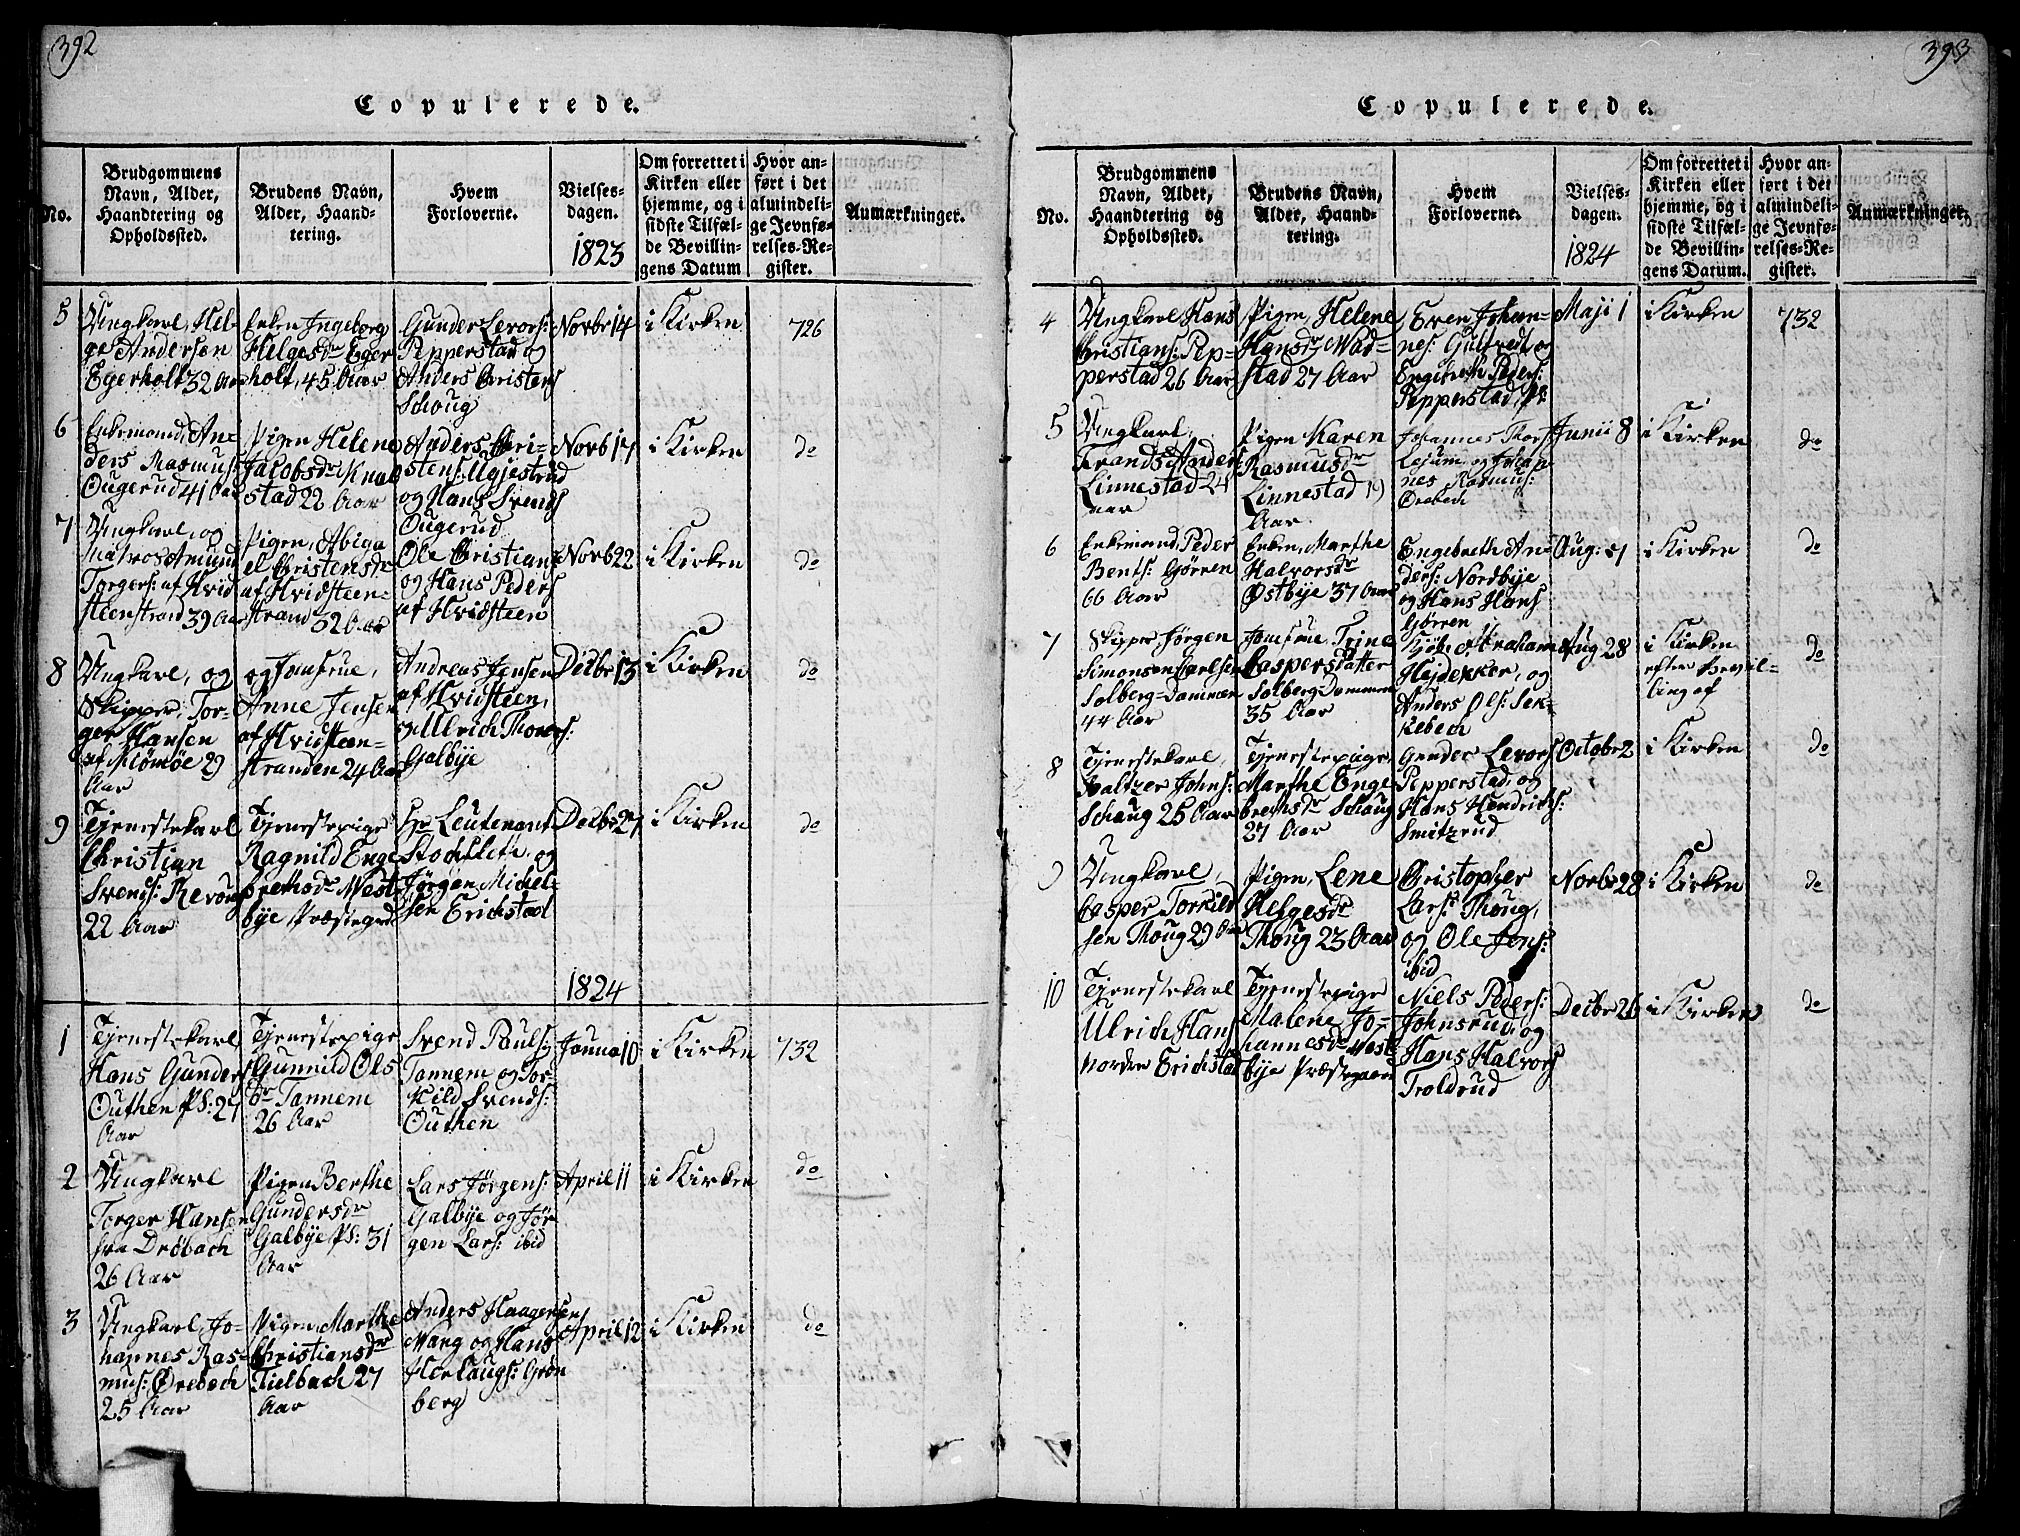 392
Copulerede.
No.
Brudgommens
Navn, Alder,
Haandtering og
Opholdssted.
Brudens Navn,
Alder, Haand-
tering.
Hvem
Forloverne.
Vielses-
dagen.
1823
Om forrettet i
Kirken eller
hjemme, og i
sidste Tilfæl-
de Bevillin-
gens Datum
Hvor an-
ført i det
almindeli-
ge Jevnfø-
relses-Re-
gister.
Anmærkninger.
5
Ungkarl, Hel-
ge Andersen
Egerholt 32 Aar
Enken Ingeborg
Helgesdr Eger
holt, 45 Aar
Gunder Levors:
Pepperstad og
Anders Christens
Schoug
Novbr 14
i Kirken
726
6
Enkemand, An-
ders Rasmus:
Ougerud 41 Aar
Pigen Helene
Jacobsdr Knap
stad 22 Aar
Anders Chri-
stens: Ugjestrud
og Hans Svends
Ougerud
Novb 17
i Kirken
do
7
Ungkarl, og
Matros Amund
Torgers: af Hvid
steenstrand 39 Aar
Pigen, Abiga
el Christensdr
af Hvidsteen-
strand 32 Aar
Ole Christian
og Hans Peders
af Hvidsteen
Novb 22
i Kirken
do
8
Ungkarl, og
Skipper, Tor-
ger Hansen
29
Aar
og Jomfrue,
Anne Jensen
af Hvidsteen-
stranden 24 Aar
Andreas Jensen
af Hvidsteen,
og Ulrich Thores:
Galbye
Decbr 13
i Kirken
do
9
Tjenestekarl
Christian
Svends: Revoug
22 Aar
Tjenestepige
Ragnild Enge
brethsdr Vest
bye Præstegrd
Hr Leutenant
Stochfleth, og
Jørgen Michel-
sen Erichstad
Decbr 27
i Kirken
do
1824
1
Tjenestekarl
Hans Gunders
Outhen Ps: 27
Aar
Tjenestepige
Gunnild Ols
dr Tannem
26 Aar
Svend Pouls:
Tannem og Tor
kild Svends:
Outhen
Janua 10
i Kirken
732
2
Ungkarl
Torger Hansen
fra Drøbach
26 Aar
Pigen Berthe
Gundersdr
Galbye Ps: 31
Aar
Lars Jørgens:
Galbye og Jør
gen Lars: ibid
April 11
i Kirken
do
3
Ungkarl, Jo-
hannes Ras-
mus: Ørebech
25 Aar
Pigen Marthe
Christiansdr
Tielbach 27
Aar
Anders Haagensen
Mang og Hans
Herlaugs: Grøn
berg
April 12
i Kirken
do
393
Copulerede.
No.
Brudgommens
Navn, Alder,
Haandtering og
Opholdssted.
Brudens Navn,
Alder, Haand-
tering.
Hvem
Forloverne.
Vielses-
dagen.
1824
Om forrettet i
Kirken eller
hjemme, og i
sidste Tilfæl-
de Bevillin-
gens Datum.
Hvor an-
ført i det
almindeli-
ge Jevnfø-
relses-Re-
gister.
Anmærkninger.
4
Ungkarl Hans
Christians: Pep-
perstad 26 Aar
Pigen, Helene
Hansdr Wad-
stad 27 Aar
Even Johan-
nes: og
Engebreth Peders:
Pepperstad,
Maji 1
i Kirken
732
5
Ungkarl,
Frands Anders
Linnestad 24
aar
Pigen Karen
Rasmusdr
Linnestad 19
Aar
Johannes Thors
og Johan
nes Rasmus:
Ørebech
Junii 8
i Kirken
do
6
Enkemand, Peder
Bents: Gjørren
66 Aar
Enken, Marthe
Halvorsdr
Østbye 37 Aar
Engebreth An
ders: Nordbye
og Hans Hans
Gjørren
Aug:
i Kirken
do
7
Skipper Jørgen
Simonsen Carlsen
Solberg-Dammen
44 Aar
Jomfrue Trine
Caspersdatter
Solberg-Dammen
35 Aar
Kjøbm: Abraham
Hejdekker, og
Anders Ols: Sek-
kebech
Aug 28
i Kirken
efter Bevil-
ling af
do
8
Tjenestekarl,
Baltzer Johns:
Schoug 25 Aar
Tjenestepige
Marthe Enge
brethsdr Schoug
27 Aar
Gunder Levors
Pepperstad, og
Hans Hendrichs:
Smitzrud
Octobr 2
i Kirken
do
9
Ungkarl,
Casper Torkild
sen Thoug 29 Aar
Pigen, Lene
Helgesdr
Thoug 23 Aar
Christopher
Lars: Thoug,
og Ole Jens:
ibid
Novbr 28
i Kirken
do
10
Tjenestekarl
Ulrich Hans
nordre Erichstad
Tjenestepige
Malene Jo-
hannesdr Vest
bye Præstegaard
Niels Peders:
Johnsrud, og
Hans Halvors
Troldrud
Decbr 26
i Kirken
do